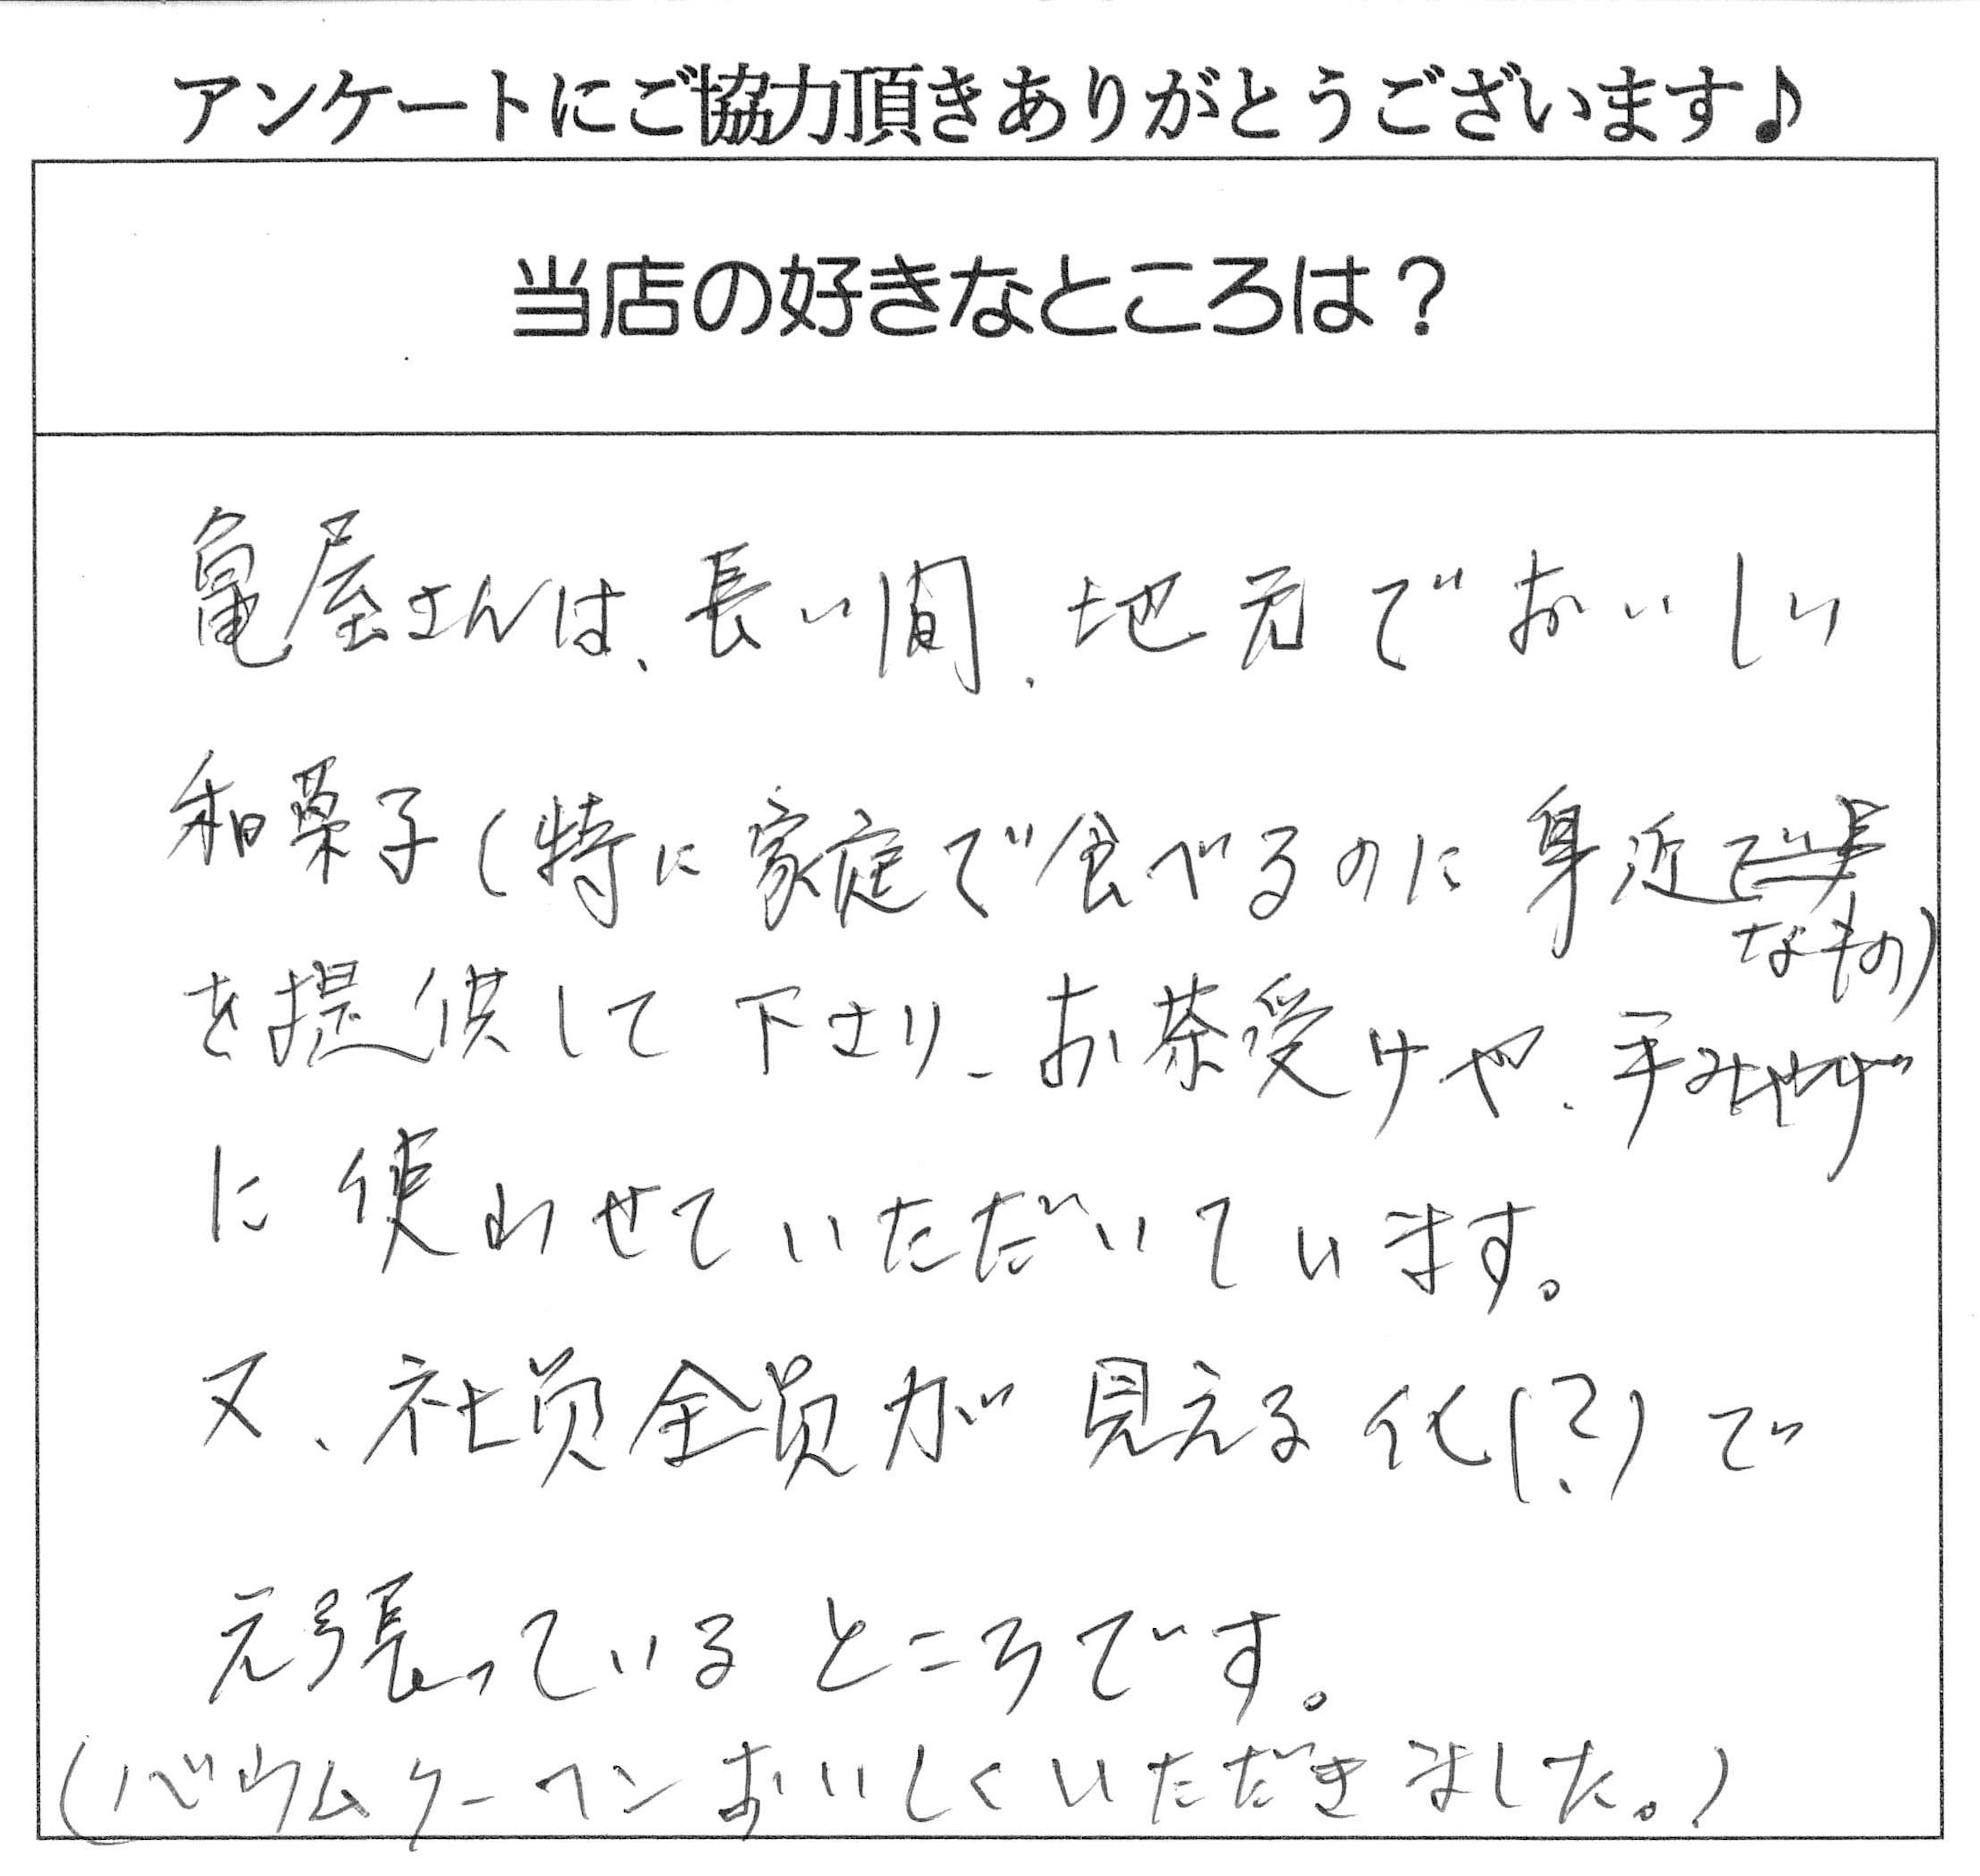 アンケートにご協力頂きありがとうございます♪
当店の好きなところは？
亀屋さんは、長い間、地元でおいしい
和菓子（特に家庭で食べるのに身近
なもの）
を提供して下さり、お茶受けや、手みやげ
に使わせていただいています。
又、社員全員が見える化（？）で
元張っているところです。
（バウムクーヘンおいしくいただきました。）